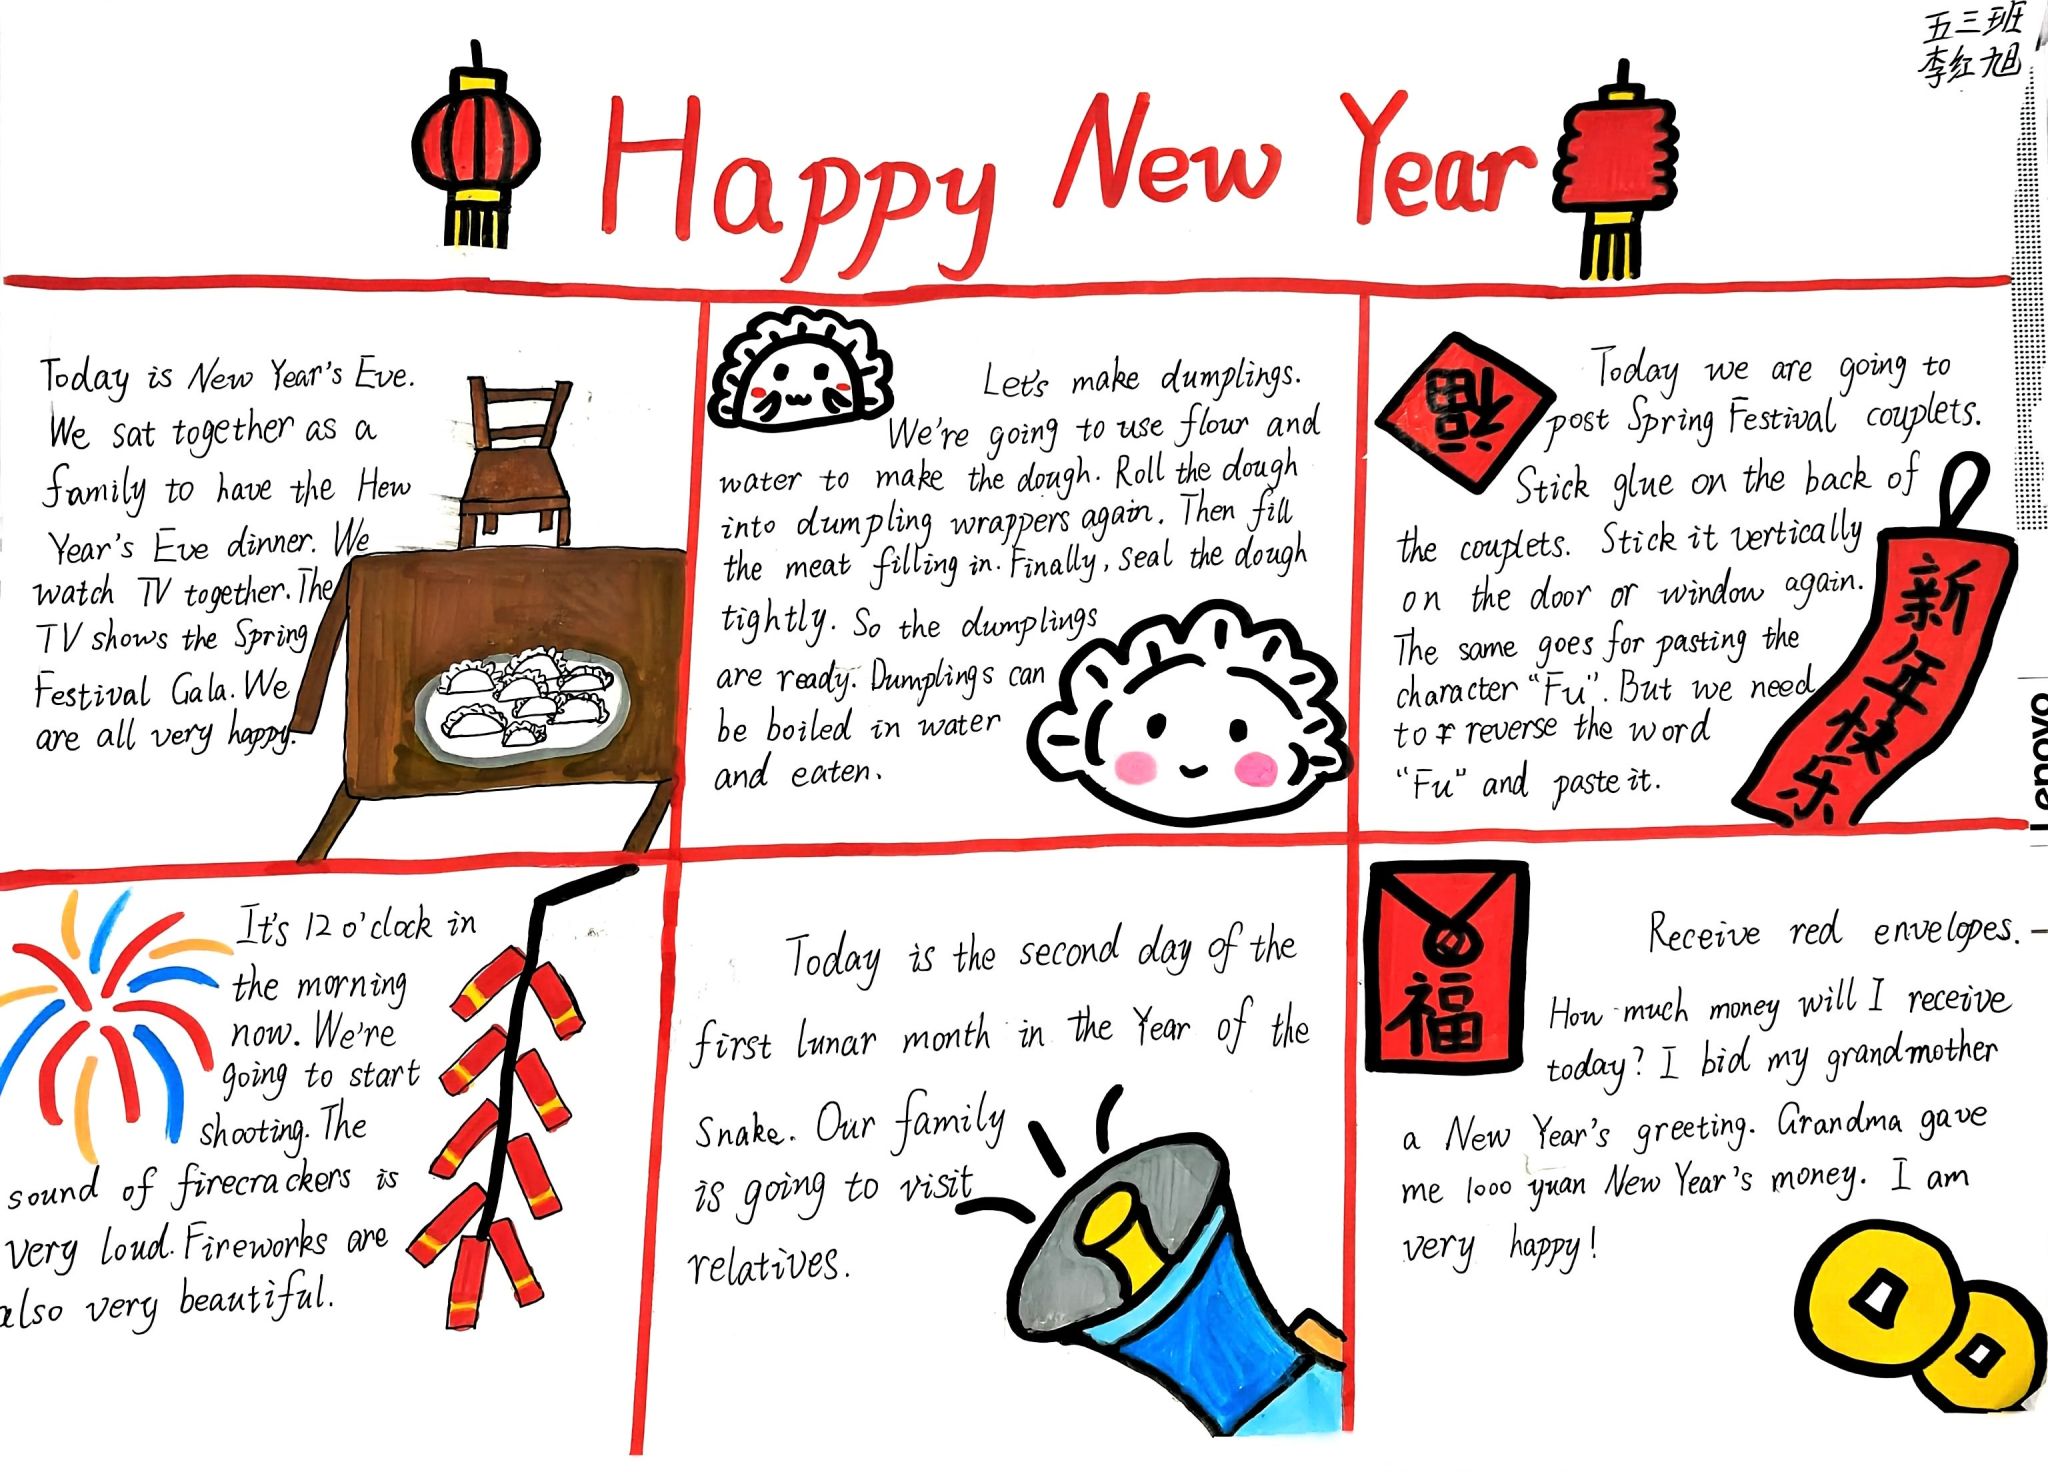 五三班
李红旭
Happy New Year
Today is New Year's Eve.
We sat together as a
family to have the Hew
Year's Eve dinner. We
watch TV together. The
TV shows the Spring
Festival Gala. We
are all very happy.
Let's make dumplings.
We're going to use flour and
water to make the dough. Roll the dough
into dumpling wrappers again. Then fill
the meat filling in. Finally, seal the dough
tightly. So the dumplings
are ready. Dumplings can
be boiled in water
and eaten.
福
Today we are going to
post Spring Festival couplets.
Stick glue on the back of
the couplets. Stick it vertically
on the door or window again.
The same goes for pasting the
character "Fu". But we need
to reverse the word
"Fu" and paste it.
新年快乐
Lenovo
It's 12 o'clock in
the morning
now. We're
going to start
shooting. The
sound of firecrackers is
very loud. Fireworks are
also very beautiful.
Today is the second day of the
first lunar month in the Year of the
Snake. Our family
is going to visit
relatives.
福
Receive red envelopes.
How much money will I receive
today? I bid my grandmother
a New Year's greeting. Grandma gave
me 1000 yuan New Year's money. I am
very happy!